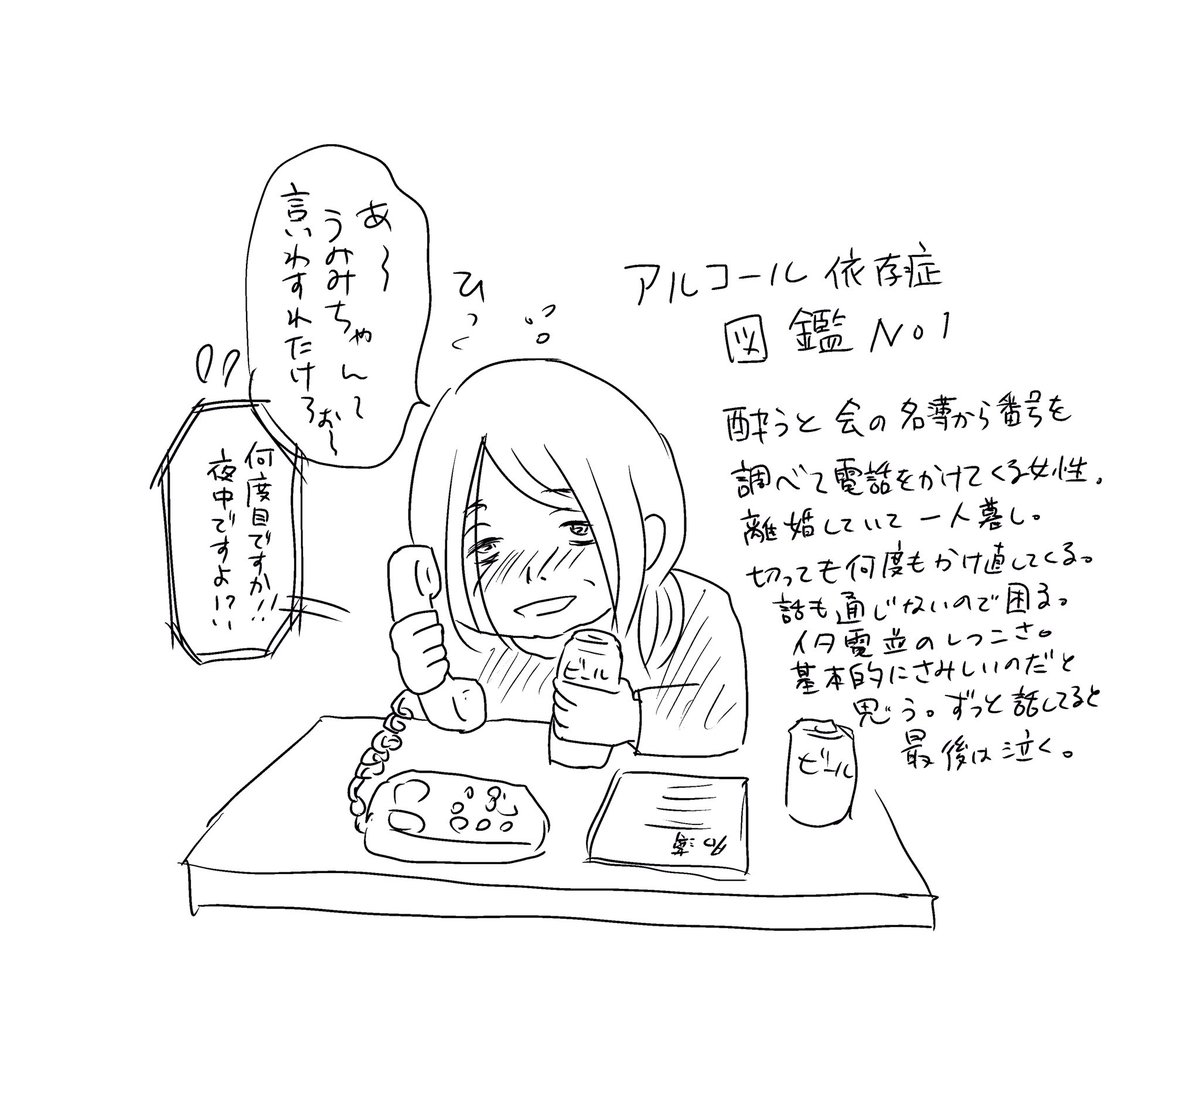 アルコール依存症
図鑑 No1
あ〜
うみみちゃんて
言いわすれたけろぉ〜
ひっく
何度目ですか!!
夜中ですよ!?
酔うと会の名簿から番号を
調べて電話をかけてくる女性。
離婚していて一人暮し。
切っても何度もかけ直してくる。
話も通じないので困る。
イタ電並のしつこさ。
基本的にさみしいのだと
思う。ずっと話してると
最後は泣く。
ビール
ビール
名簿